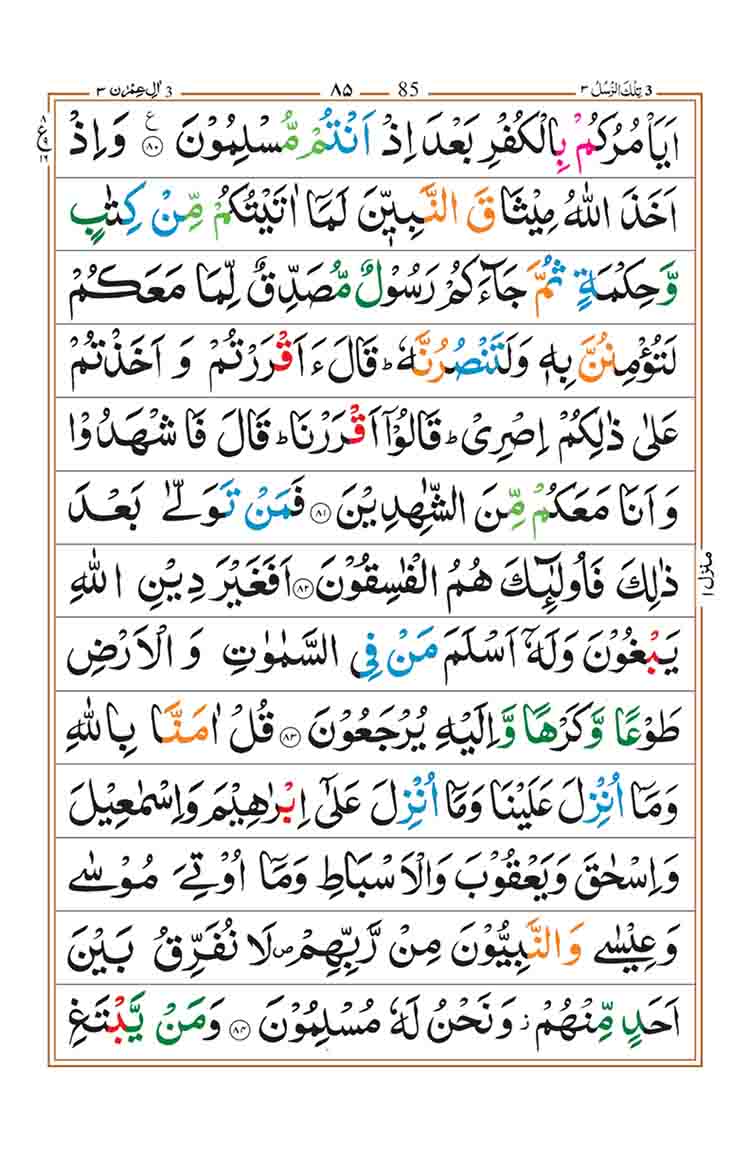 3 تِلْكَ الرُّسُلُ ٣ 85 ٨٥ 3 اٰلِ عِمْرٰن ٣
اَيَاْمُرُكُمْ بِالْكُفْرِ بَعْدَ اِذْ اَنْتُمْ مُّسْلِمُوْنَ ﴿٨٠﴾ ع وَ اِذْ
اَخَذَ اللّٰهُ مِيْثَاقَ النَّبِيّٖنَ لَمَاۤ اٰتَيْتُكُمْ مِّنْ كِتٰبٍ
وَّ حِكْمَةٍ ثُمَّ جَآءَكُمْ رَسُوْلٌ مُّصَدِّقٌ لِّمَا مَعَكُمْ
لَتُؤْمِنُنَّ بِهٖ وَلَتَنْصُرُنَّهٗ ؕ قَالَ ءَاَقْرَرْتُمْ وَ اَخَذْتُمْ
عَلٰى ذٰلِكُمْ اِصْرِىْ ؕ قَالُوْۤا اَقْرَرْنَا ؕ قَالَ فَاشْهَدُوْا
وَ اَنَا مَعَكُمْ مِّنَ الشّٰهِدِيْنَ ﴿٨١﴾ فَمَنْ تَوَلّٰى بَعْدَ
ذٰلِكَ فَاُولٰٓئِكَ هُمُ الْفٰسِقُوْنَ ﴿٨٢﴾ اَفَغَيْرَ دِيْنِ اللّٰهِ
يَبْغُوْنَ وَلَهٗۤ اَسْلَمَ مَنْ فِى السَّمٰوٰتِ وَ الْاَرْضِ
طَوْعًا وَّكَرْهًا وَّاِلَيْهِ يُرْجَعُوْنَ ﴿٨٣﴾ قُلْ اٰمَنَّا بِاللّٰهِ
وَمَاۤ اُنْزِلَ عَلَيْنَا وَمَاۤ اُنْزِلَ عَلٰٓى اِبْرٰهِيْمَ وَاِسْمٰعِيْلَ
وَاِسْحٰقَ وَيَعْقُوْبَ وَالْاَسْبَاطِ وَمَاۤ اُوْتِىَ مُوْسٰى
وَعِيْسٰى وَالنَّبِيُّوْنَ مِنْ رَّبِّهِمْ ص لَا نُفَرِّقُ بَيْنَ
اَحَدٍ مِّنْهُمْ ز وَنَحْنُ لَهٗ مُسْلِمُوْنَ ﴿٨٤﴾ وَمَنْ يَّبْتَغِ
منزل ١